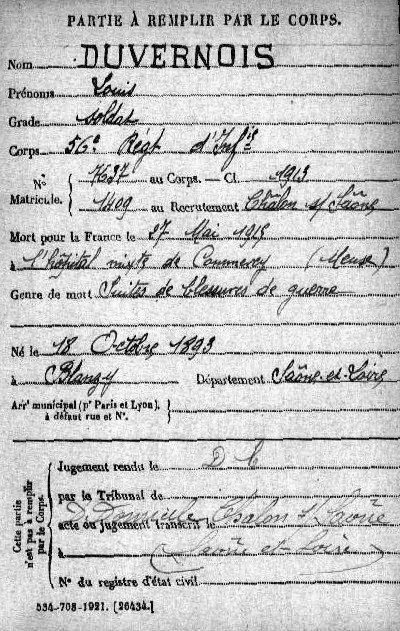 PARTIE À REMPLIR PAR LE CORPS.
Nom DUVERNOIS
Prénoms Louis
Grade Soldat
Corps 56e Régt d'Infie
N° Matricule. { 7637 au Corps. — Cl. 1913
1409 au Recrutement Châlon s/ Saône
Mort pour la France le 27 Mai 1915
à l'hôpital mixte de Commercy (Meuse)
Genre de mort Suites de blessures de guerre
Né le 18 Octobre 1893
à Blanzy Département Saône-et-Loire
Arrt municipal (pr Paris et Lyon), à défaut rue et N°. }
Cette partie n'est pas à remplir par le Corps.
Jugement rendu le
par le Tribunal de
acte ou jugement transcrit le D. Domicile Chalon s/ Saône
à (Saône et-Loire)
N° du registre d'état civil
534-708-1921. [26434.]